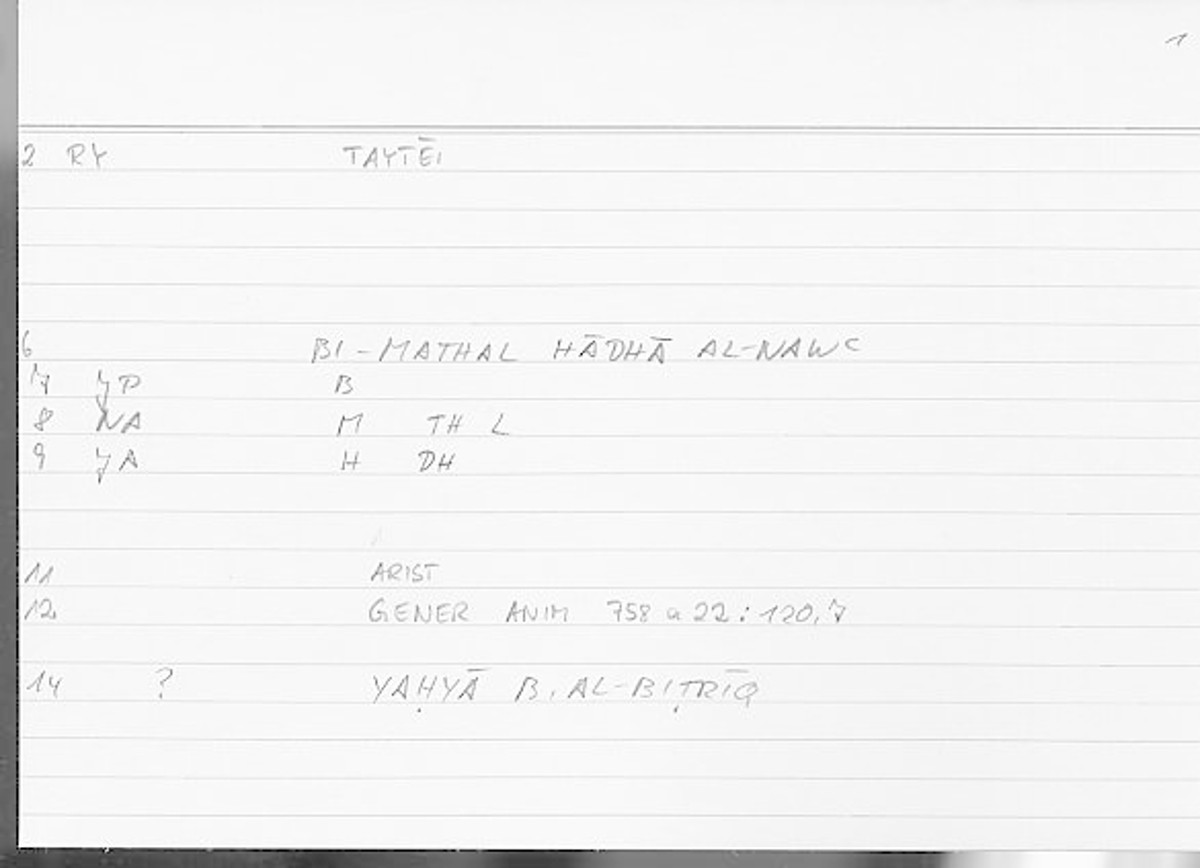 1
2 RY TAYTĒI
6 BI-MATHAL HĀDHĀ AL-NAWᶜ
7 JP B
8 NA M TH L
9 JA H DH
11 ARIST
12 GENER ANIM 758 a 22 : 120,7
14 ? YAḤYĀ B. AL-BIṬRĪQ